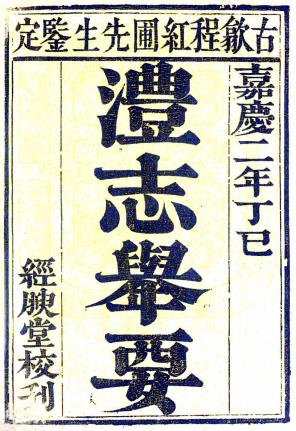 古歙程紅圃先生鑒定
嘉慶二年丁巳
澧志舉要
經腴堂校刊